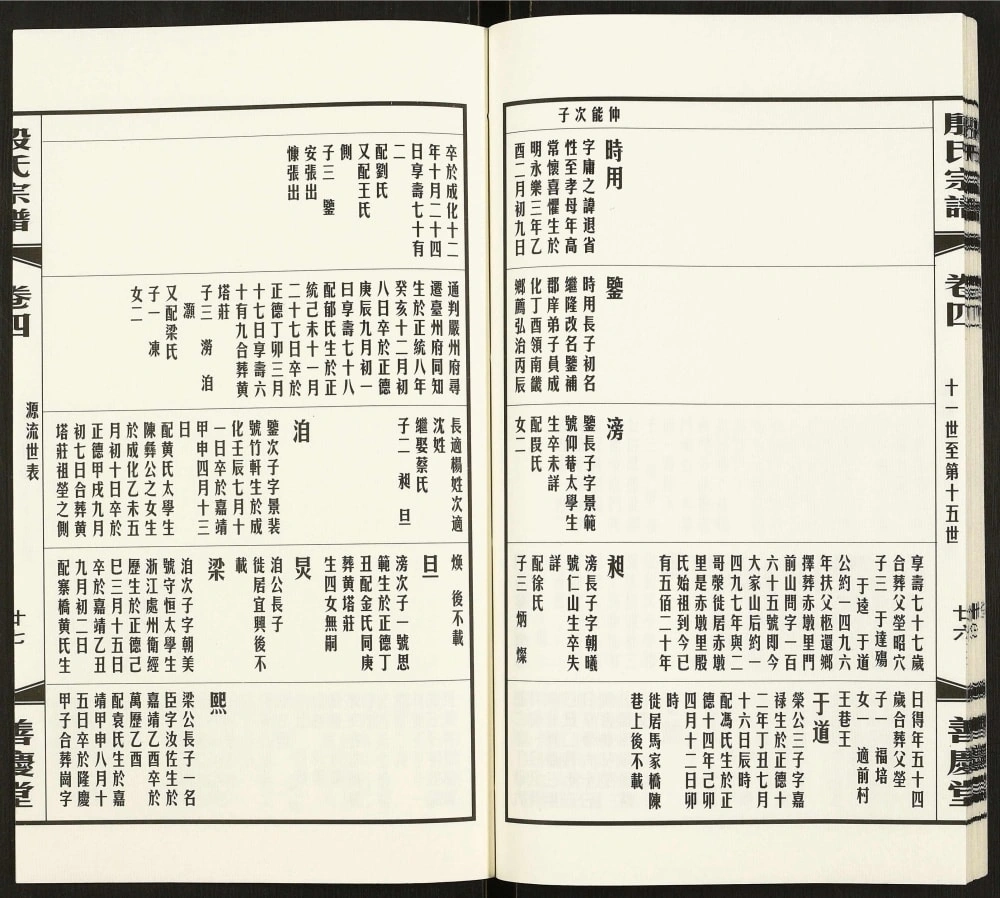 殷氏宗譜
卷四
十一世至第十五世
廿六
善慶堂
仲能次子
時用
字庸之諱退省
性至孝母年高
常懷喜懼生於
明永樂三年乙
酉二月初九日
鑒
時用長子初名
繼隆改名鑒補
郡庠弟子員成
化丁酉領南畿
鄉薦弘治丙辰
滂
鑒長子字景範
號仰菴太學生
生卒未詳
配段氏
女二
享壽七十七歲
合葬父塋昭穴
子三 于達殤
于逵 于道
公約一四九六
年扶父柩還鄉
擇葬赤墩里門
前山問字一百
六十五號即今
大家山后約一
四九七年與二
哥槃徙居赤墩
里是赤墩里殷
氏始祖到今已
有五佰二十年
昶
滂長子字朝曦
號仁山生卒失
詳
配徐氏
子三 炳 燦
日得年五十四
歲合葬父塋
子一 福培
女一 適前村
王巷王
于道
榮公三子字嘉
禄生於正德十
二年丁丑七月
十六日辰時
配馮氏生於正
德十四年己卯
四月十二日卯
時
徙居馬家橋陳
巷上後不載
卒於成化十二
年十月二十四
日享壽七十有
二
配劉氏
又配王氏
側
子三 鑒
安張出
慷張出
通判嚴州府尋
遷臺州府同知
生於正統八年
癸亥十二月初
八日卒於正德
庚辰九月初一
日享壽七十八
配郁氏生於正
統己未十一月
二十七日卒於
正德丁卯三月
十七日享壽六
十有九合葬黃
塔莊
子三 澇 洎
灝
又配梁氏
子一 凍
女二
長適楊姓次適
沈姓
繼娶蔡氏
子二 昶 旦
洎
鑒次子字景裴
號竹軒生於成
化壬辰七月十
一日卒於嘉靖
甲申四月十三
日
配黃氏太學生
陳彝公之女生
於成化乙未五
月初十日卒於
正德甲戌九月
初七日合葬黃
塔莊祖塋之側
煥 後不載
旦
滂次子一號思
範生於正德丁
丑配金氏同庚
葬黃塔莊
生四女無嗣
炅
洎公長子
徙居宜興後不
載
梁
洎次子字朝美
號守恒太學生
浙江處州衛經
歷生於正德己
巳三月十五日
卒於嘉靖乙丑
九月初二日
配寨橋黃氏生
熙
梁公長子一名
臣字汝佐生於
嘉靖乙酉卒於
萬歷乙酉
配袁氏生於嘉
靖甲申八月十
五日卒於隆慶
甲子合葬崗字
殷氏宗譜
卷四
源流世表
廿七
善慶堂